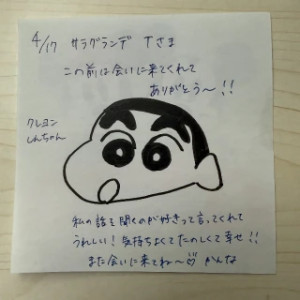 4/17 サラグランデ Tさま
この前は会いに来てくれて
ありがとう〜!!
クレヨン
しんちゃん
私の話を聞くのが好きって言ってくれて
うれしい!気持ちよくてたのしくて幸せ!!
また会いに来てね〜♡ かんな